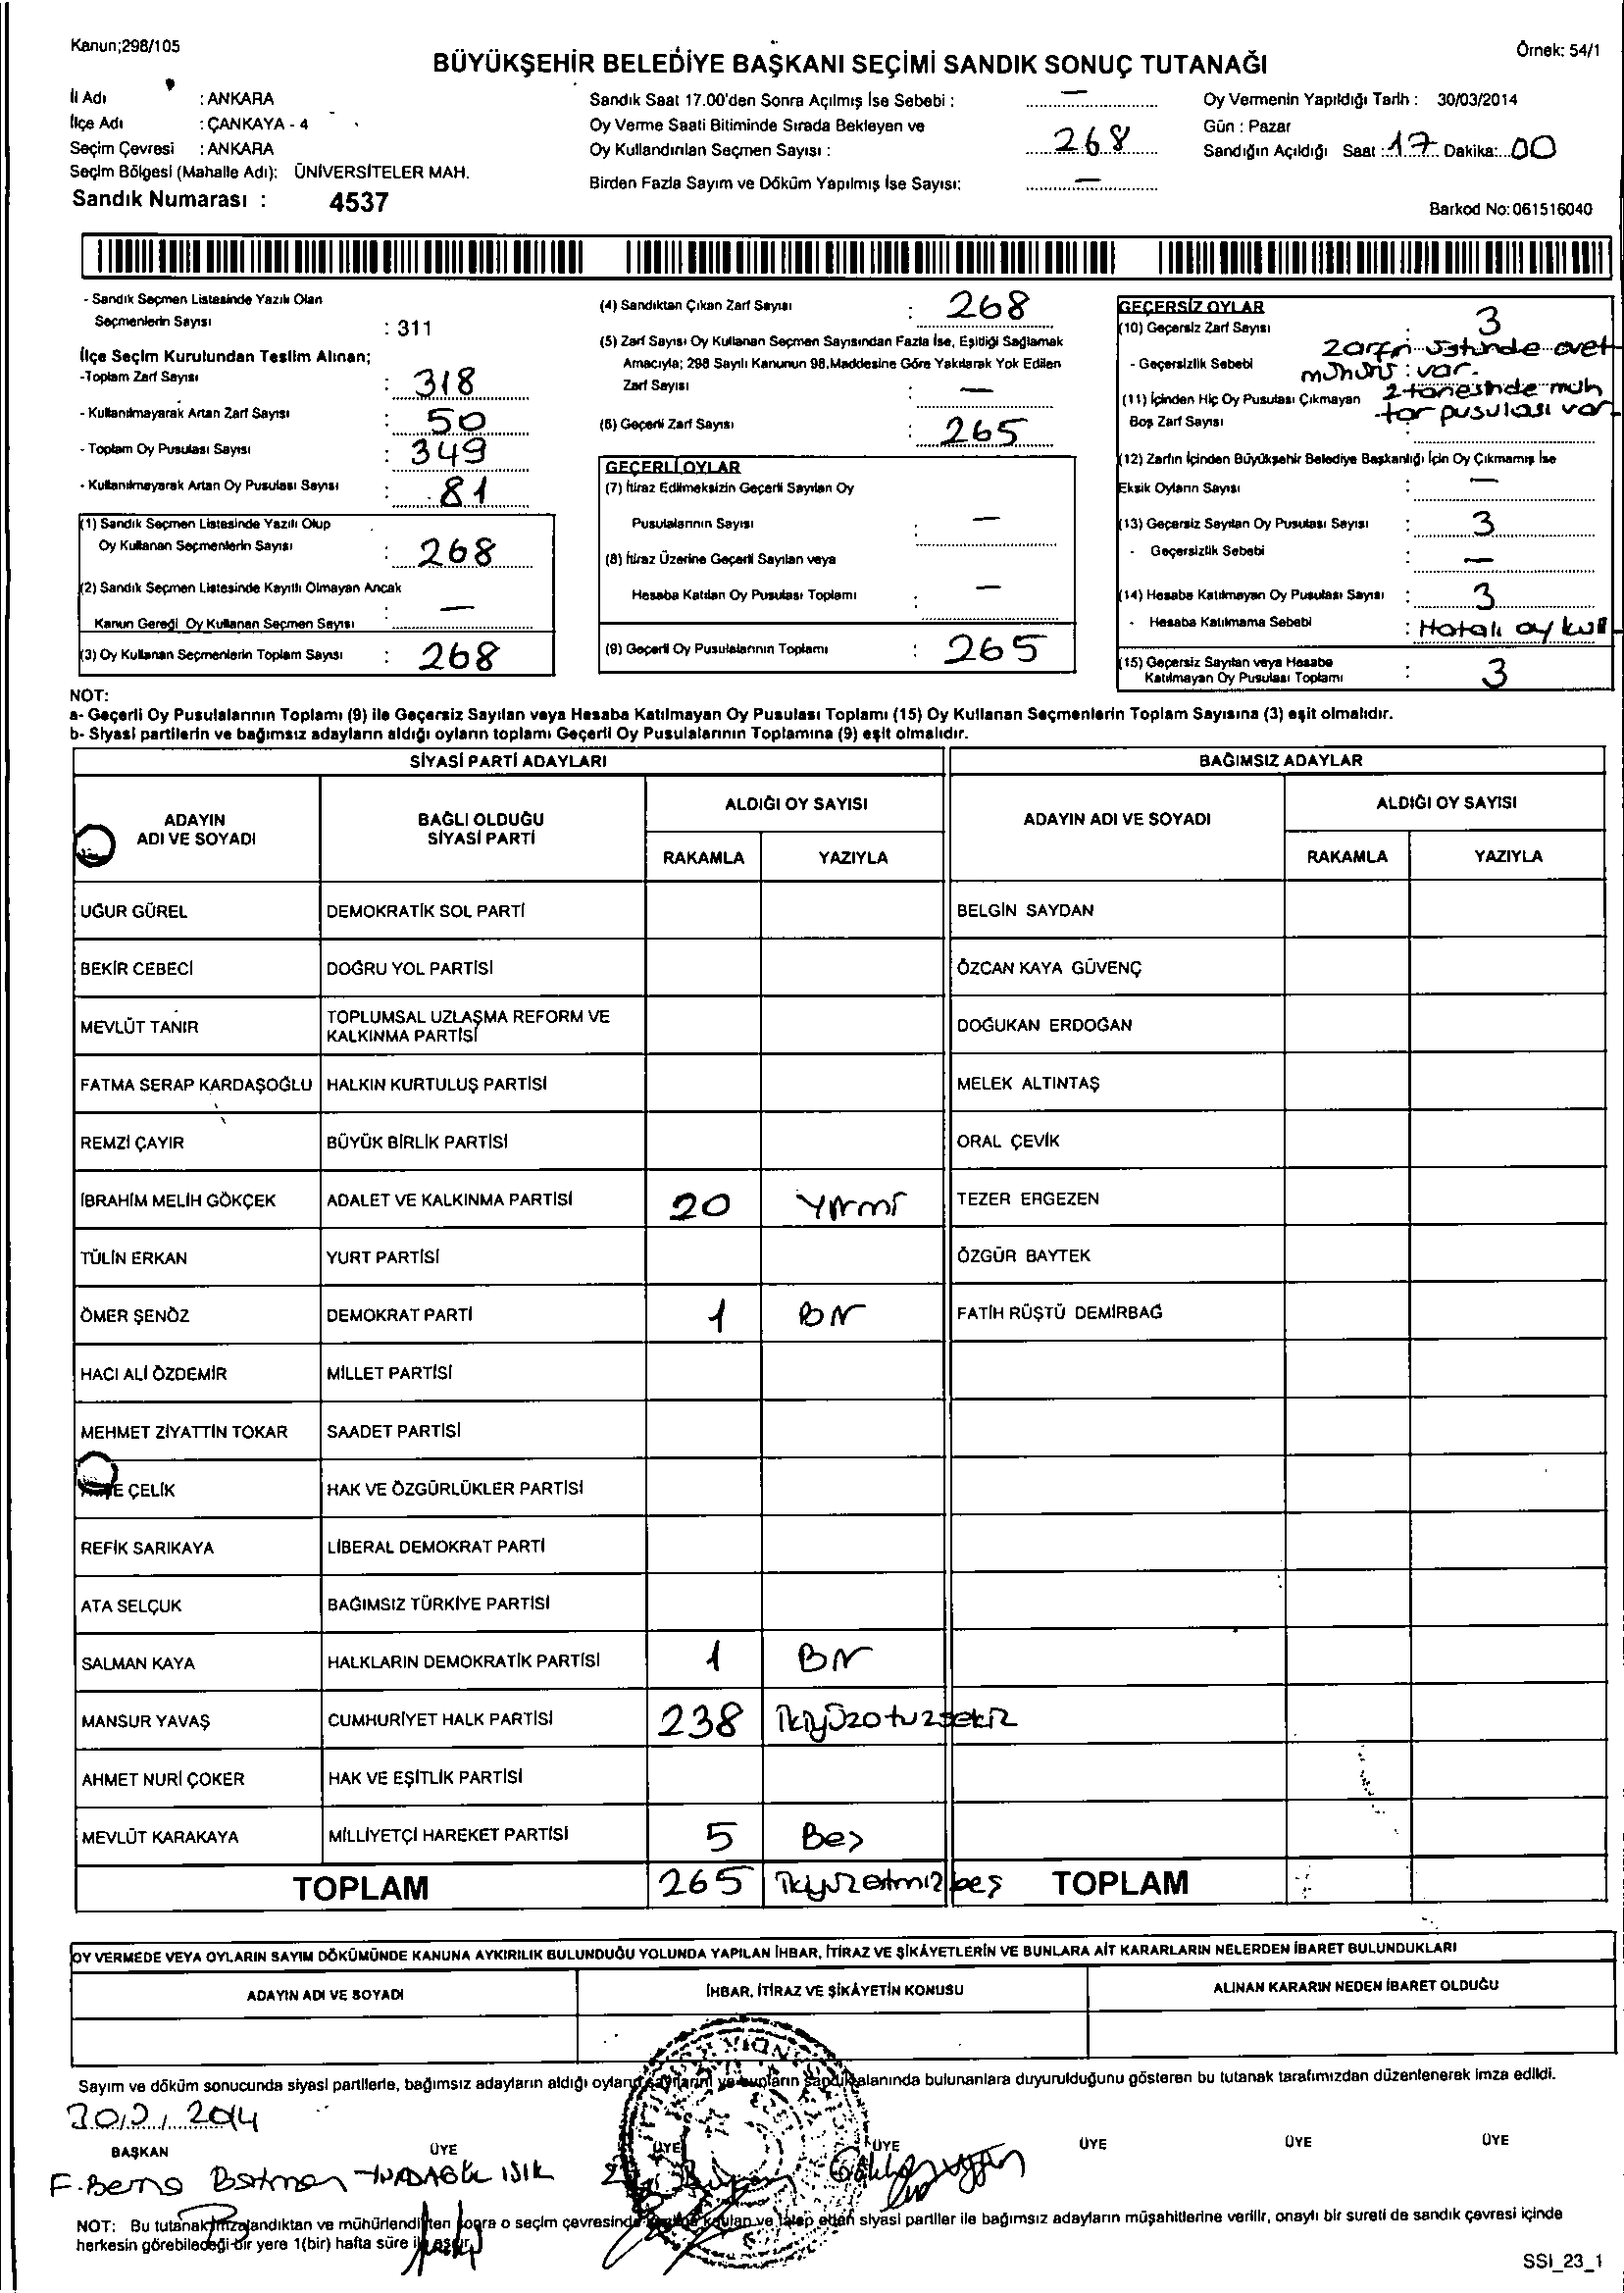 Kanun;298/105
Örnek: 54/1
BÜYÜKŞEHİR BELEDİYE BAŞKANI SEÇİMİ SANDIK SONUÇ TUTANAĞI
İl Adı : ANKARA
İlçe Adı : ÇANKAYA - 4
Seçim Çevresi : ANKARA
Seçim Bölgesi (Mahalle Adı): ÜNİVERSİTELER MAH.
Sandık Numarası : 4537
Sandık Saat 17.00'den Sonra Açılmış İse Sebebi : —
Oy Verme Saati Bitiminde Sırada Bekleyen ve
Oy Kullandırılan Seçmen Sayısı : 268
Birden Fazla Sayım ve Döküm Yapılmış İse Sayısı: —
Oy Vermenin Yapıldığı Tarih : 30/03/2014
Gün : Pazar
Sandığın Açıldığı Saat : 17 Dakika: 00
Barkod No: 061516040
- Sandık Seçmen Listesinde Yazılı Olan
Seçmenlerin Sayısı : 311
İlçe Seçim Kurulundan Teslim Alınan;
-Toplam Zarf Sayısı : 318
- Kullanılmayarak Artan Zarf Sayısı : 50
- Toplam Oy Pusulası Sayısı : 349
- Kullanılmayarak Artan Oy Pusulası Sayısı : 81
(1) Sandık Seçmen Listesinde Yazılı Olup
Oy Kullanan Seçmenlerin Sayısı : 268
(2) Sandık Seçmen Listesinde Kayıtlı Olmayan Ancak
Kanun Gereği Oy Kullanan Seçmen Sayısı : —
(3) Oy Kullanan Seçmenlerin Toplam Sayısı : 268
(4) Sandıktan Çıkan Zarf Sayısı : 268
(5) Zarf Sayısı Oy Kullanan Seçmen Sayısından Fazla İse, Eşitliği Sağlamak
Amacıyla; 298 Sayılı Kanunun 98.Maddesine Göre Yakılarak Yok Edilen
Zarf Sayısı : —
(6) Geçerli Zarf Sayısı : 265
GEÇERLİ OYLAR
(7) İtiraz Edilmeksizin Geçerli Sayılan Oy
Pusulalarının Sayısı : —
(8) İtiraz Üzerine Geçerli Sayılan veya
Hesaba Katılan Oy Pusulası Toplamı : —
(9) Geçerli Oy Pusulalarının Toplamı : 265
GEÇERSİZ OYLAR
(10) Geçersiz Zarf Sayısı : 3
- Geçersizlik Sebebi : zarfın üstünde evet
mührü var.
2 tanesinde muh
tar pusulası var
(11) İçinden Hiç Oy Pusulası Çıkmayan
Boş Zarf Sayısı :
(12) Zarfın İçinden Büyükşehir Belediye Başkanlığı İçin Oy Çıkmamış İse
Eksik Oyların Sayısı : —
(13) Geçersiz Sayılan Oy Pusulası Sayısı : 3
- Geçersizlik Sebebi : —
(14) Hesaba Katılmayan Oy Pusulası Sayısı : 3
- Hesaba Katılmama Sebebi : Hatalı oy kull
(15) Geçersiz Sayılan veya Hesaba
Katılmayan Oy Pusulası Toplamı : 3
NOT:
a- Geçerli Oy Pusulalarının Toplamı (9) ile Geçersiz Sayılan veya Hesaba Katılmayan Oy Pusulası Toplamı (15) Oy Kullanan Seçmenlerin Toplam Sayısına (3) eşit olmalıdır.
b- Siyasi partilerin ve bağımsız adayların aldığı oyların toplamı Geçerli Oy Pusulalarının Toplamına (9) eşit olmalıdır.
SİYASİ PARTİ ADAYLARI BAĞIMSIZ ADAYLAR
ADAYIN ADI VE SOYADI BAĞLI OLDUĞU SİYASİ PARTİ ALDIĞI OY SAYISI ADAYIN ADI VE SOYADI ALDIĞI OY SAYISI
RAKAMLA YAZIYLA RAKAMLA YAZIYLA
UĞUR GÜREL DEMOKRATİK SOL PARTİ BELGİN SAYDAN
BEKİR CEBECİ DOĞRU YOL PARTİSİ ÖZCAN KAYA GÜVENÇ
MEVLÜT TANIR TOPLUMSAL UZLAŞMA REFORM VE KALKINMA PARTİSİ DOĞUKAN ERDOĞAN
FATMA SERAP KARDAŞOĞLU HALKIN KURTULUŞ PARTİSİ MELEK ALTINTAŞ
REMZİ ÇAYIR BÜYÜK BİRLİK PARTİSİ ORAL ÇEVİK
İBRAHİM MELİH GÖKÇEK ADALET VE KALKINMA PARTİSİ 20 Yirmi TEZER ERGEZEN
TÜLİN ERKAN YURT PARTİSİ ÖZGÜR BAYTEK
ÖMER ŞENÖZ DEMOKRAT PARTİ 1 Bir FATİH RÜŞTÜ DEMİRBAĞ
HACI ALİ ÖZDEMİR MİLLET PARTİSİ
MEHMET ZİYATTİN TOKAR SAADET PARTİSİ
ÇELİK HAK VE ÖZGÜRLÜKLER PARTİSİ
REFİK SARIKAYA LİBERAL DEMOKRAT PARTİ
ATA SELÇUK BAĞIMSIZ TÜRKİYE PARTİSİ
SALMAN KAYA HALKLARIN DEMOKRATİK PARTİSİ 1 Bir
MANSUR YAVAŞ CUMHURİYET HALK PARTİSİ 238 İkiyüzotuzsekiz
AHMET NURİ ÇOKER HAK VE EŞİTLİK PARTİSİ
MEVLÜT KARAKAYA MİLLİYETÇİ HAREKET PARTİSİ 5 Beş
TOPLAM 265 İkiyüzatmışbeş TOPLAM
OY VERMEDE VEYA OYLARIN SAYIM DÖKÜMÜNDE KANUNA AYKIRILIK BULUNDUĞU YOLUNDA YAPILAN İHBAR, İTİRAZ VE ŞİKÂYETLERİN VE BUNLARA AİT KARARLARIN NELERDEN İBARET BULUNDUKLARI
ADAYIN ADI VE SOYADI İHBAR, İTİRAZ VE ŞİKÂYETİN KONUSU ALINAN KARARIN NEDEN İBARET OLDUĞU
Sayım ve döküm sonucunda siyasi partilerle, bağımsız adayların aldığı oyların sayılarını ve bunların sandık alanında bulunanlara duyurulduğunu gösteren bu tutanak tarafımızdan düzenlenerek imza edildi.
30/3/2014
BAŞKAN ÜYE ÜYE ÜYE ÜYE ÜYE ÜYE
F. Berna Batman IŞIK
NOT: Bu tutanak imzalandıktan ve mühürlendikten sonra o seçim çevresinde seçime katılan ve talep eden siyasi partiler ile bağımsız adayların müşahitlerine verilir, onaylı bir sureti de sandık çevresi içinde
herkesin görebileceği bir yere 1(bir) hafta süre ile asılır.
SSI_23_1